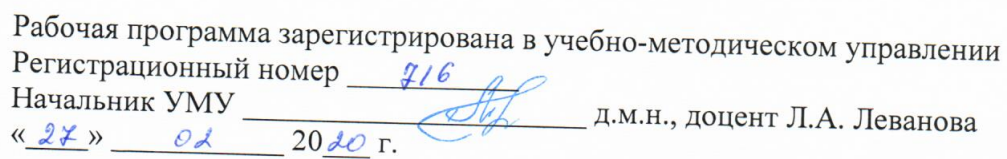 Рабочая программа зарегистрирована в учебно-методическом управлении
Регистрационный номер 716
Начальник УМУ д.м.н., доцент Л.А. Леванова
«27» 02 2020 г.